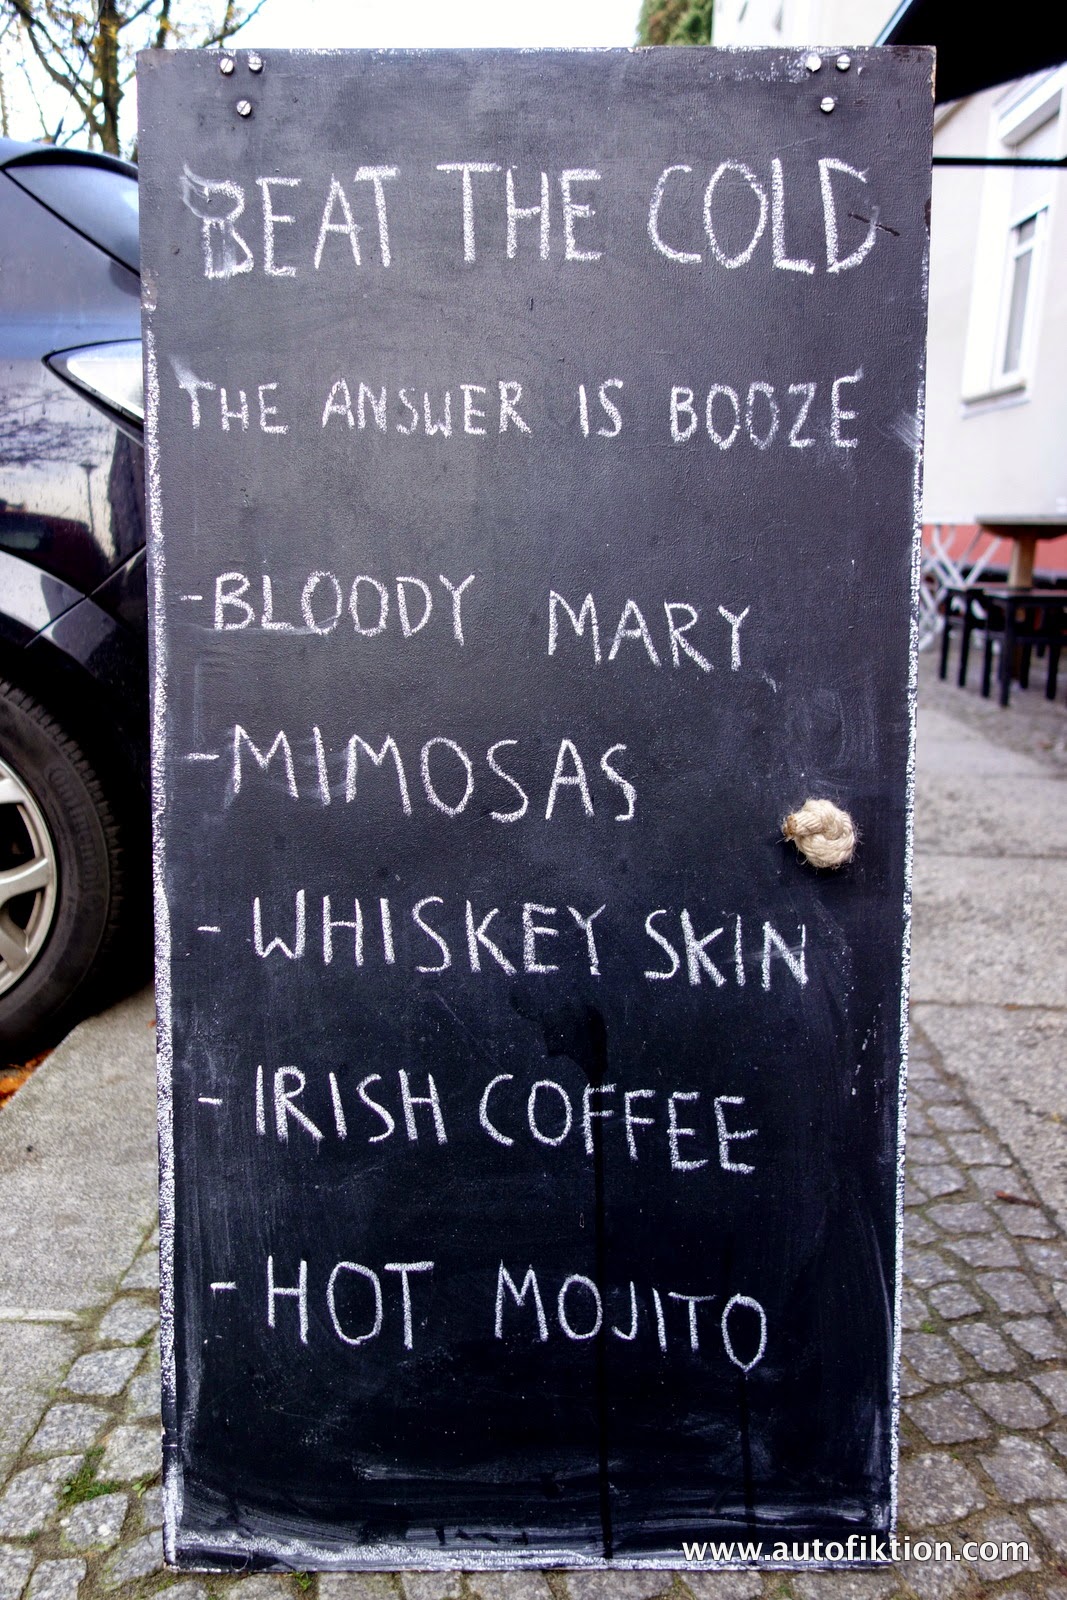 BEAT THE COLD
THE ANSWER IS BOOZE
-BLOODY MARY
-MIMOSAS
- WHISKEY SKIN
- IRISH COFFEE
- HOT MOJITO
www.autofiktion.com